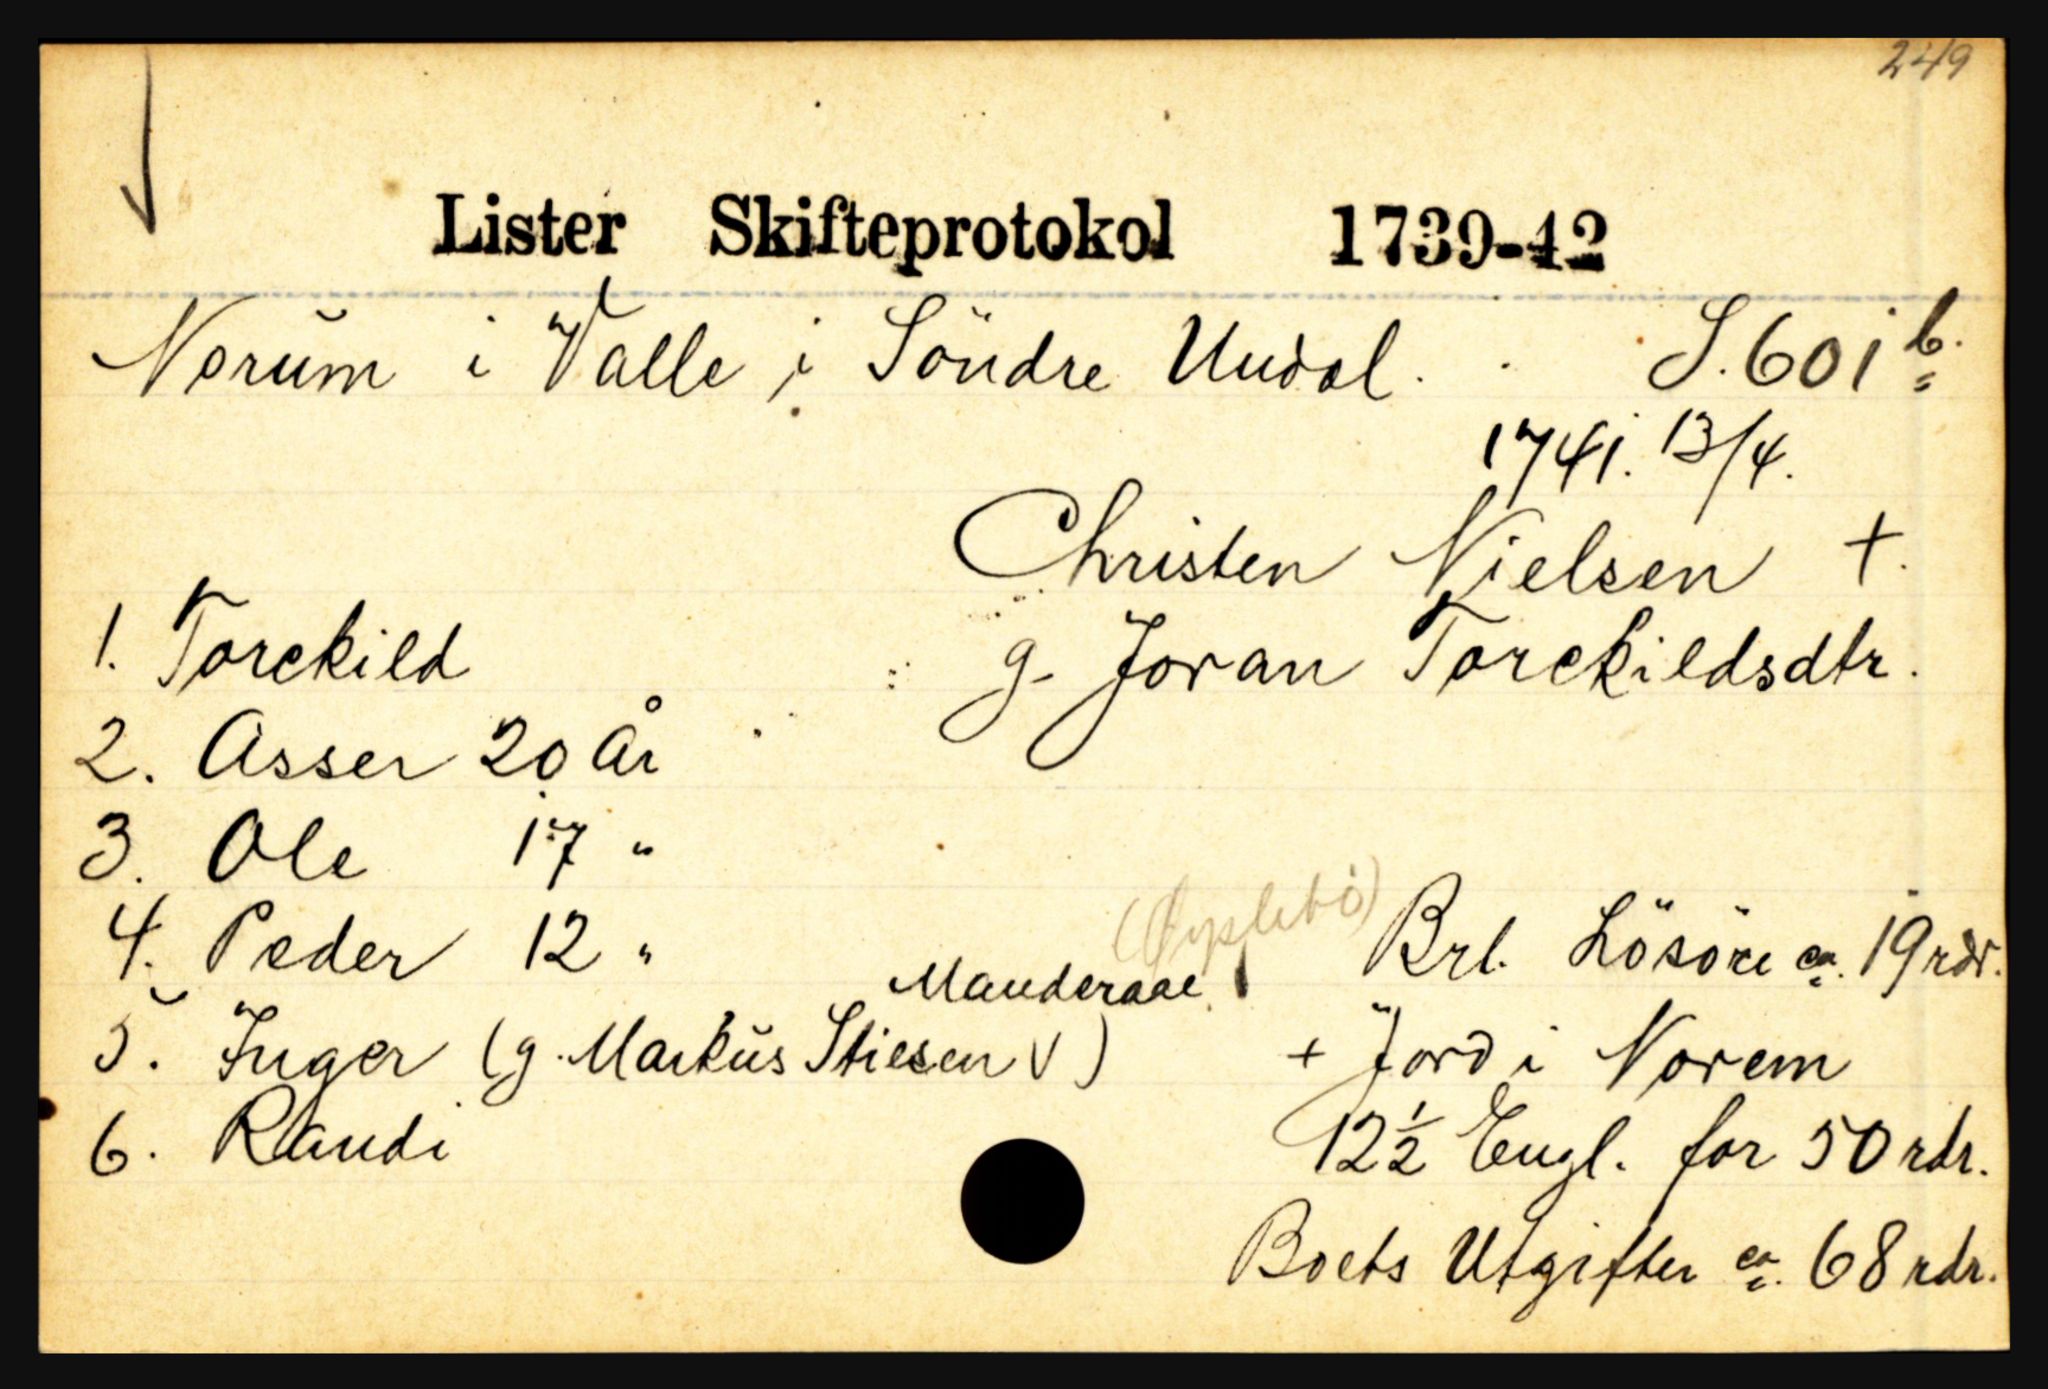 249
Lister Skifteprotokol 1739-42
Norum i Valle i Söndre Undal. S. 601 b.
1741. 13/4.
Christen Nielsen +.
g. Joran Torckildsdtr.
1. Torckild
2. Asser 20 År
3. Ole 17 "
4. Peder 12 "
Manderaae
5. Inger (g. Markus Stiesen V)
6. Randi
Brt. Lösöre ca. 19 rdr.
+ Jord i Norem
12½ Engl. for 50 rdr.
Boets Utgifter ca. 68 rdr.